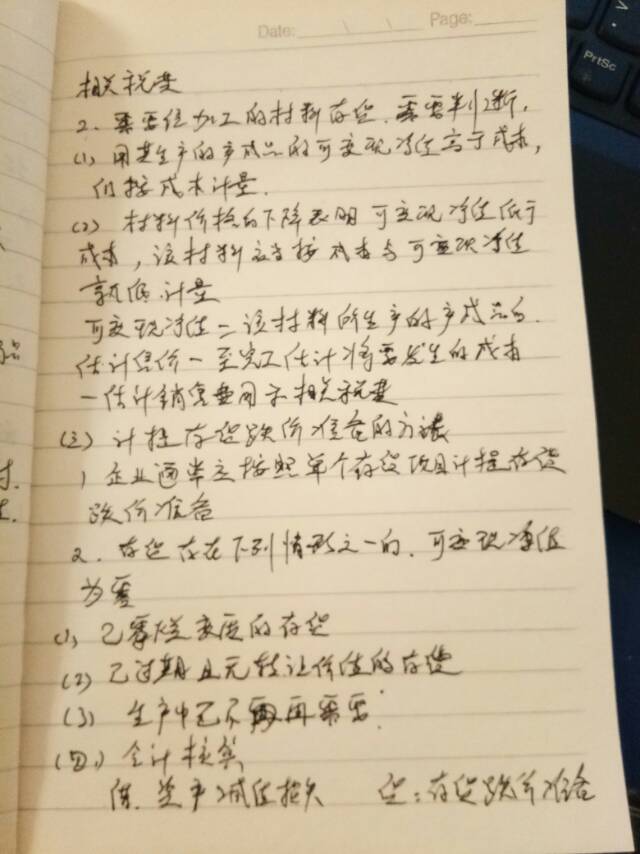 Date:
Page:
PrtSc
相关税费
2. 需要经加工的材料存货, 需要判断,
(1) 用其生产的产成品的可变现净值高于成本,
仍按成本计量.
(2) 材料价格的下降表明可变现净值低于
成本, 该材料应当按成本与可变现净值
孰低计量
可变现净值=该材料所生产的产成品的
估计售价-至完工估计将要发生的成本
-估计销售费用和相关税费
(三) 计提存货跌价准备的方法
1 企业通常应按照单个存货项目计提存货
跌价准备
2. 存货存在下列情形之一的, 可变现净值
为零
(1) 已霉烂变质的存货
(2) 已过期且无转让价值的存货
(3) 生产中已不再需要.
(四) 会计核算
借: 资产减值损失 贷: 存货跌价准备